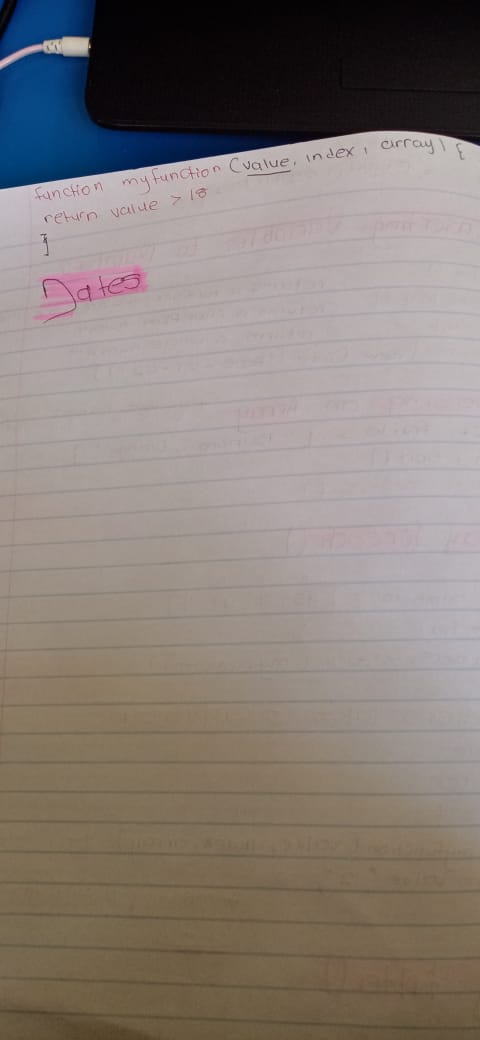 function myfunction (value, index, array) {
return value > 18
}
Dates